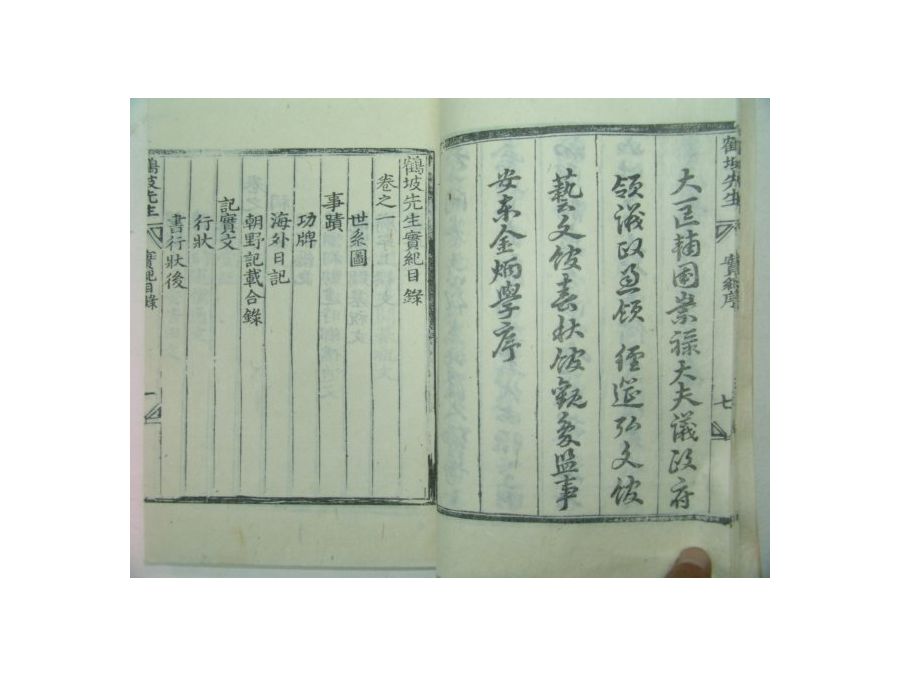 鶴坡先生
實紀序
七
大匡輔國崇祿大夫議政府
領議政兼領 經筵弘文館
藝文館春秋館觀象監事
安東金炳學序
鶴坡先生實紀目錄
卷之一
世系圖
事蹟
功牌
海外日記
朝野記載合錄
記實文
行狀
書行狀後
鶴坡先生
實紀目錄
一